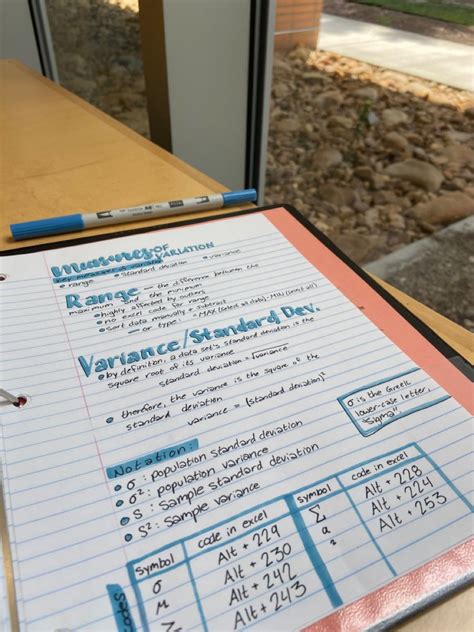 Measures OF VARIATION
key measures of variation
• range • standard deviation • variance
Range — the difference between the
maximum and the minimum
• highly affected by outliers
• no excel code for range
• sort data manually + subtract
— or type: =MAX(select all data)-MIN(select all)
Variance/Standard Dev.
• by definition, a data set's standard deviation is the
square root of its variance
standard deviation = √variance
• therefore, the variance is the square of the
standard deviation
variance = (standard deviation)²
σ is the Greek
lower-case letter,
"sigma"
Notation:
• σ: population standard deviation
• σ²: population variance
• S: sample standard deviation
• S²: sample variance
codes
symbol code in excel symbol code in excel
σ Alt + 229 Σ Alt + 228
μ Alt + 230 α Alt + 224
Alt + 242 ² Alt + 253
Alt + 243